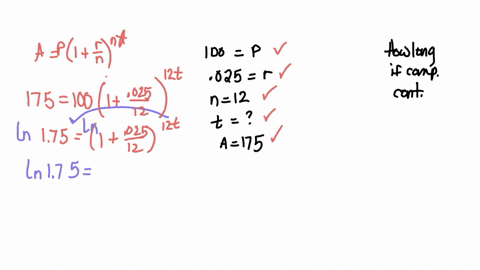 A = P(1 + r/n)^nt
175 = 100(1 + .025/12)^12t
ln 1.75 = ln(1 + .025/12)^12t
ln 1.75 =
100 = P ✓
.025 = r ✓
n = 12 ✓
t = ? ✓
A = 175 ✓
How long
if comp.
cont.